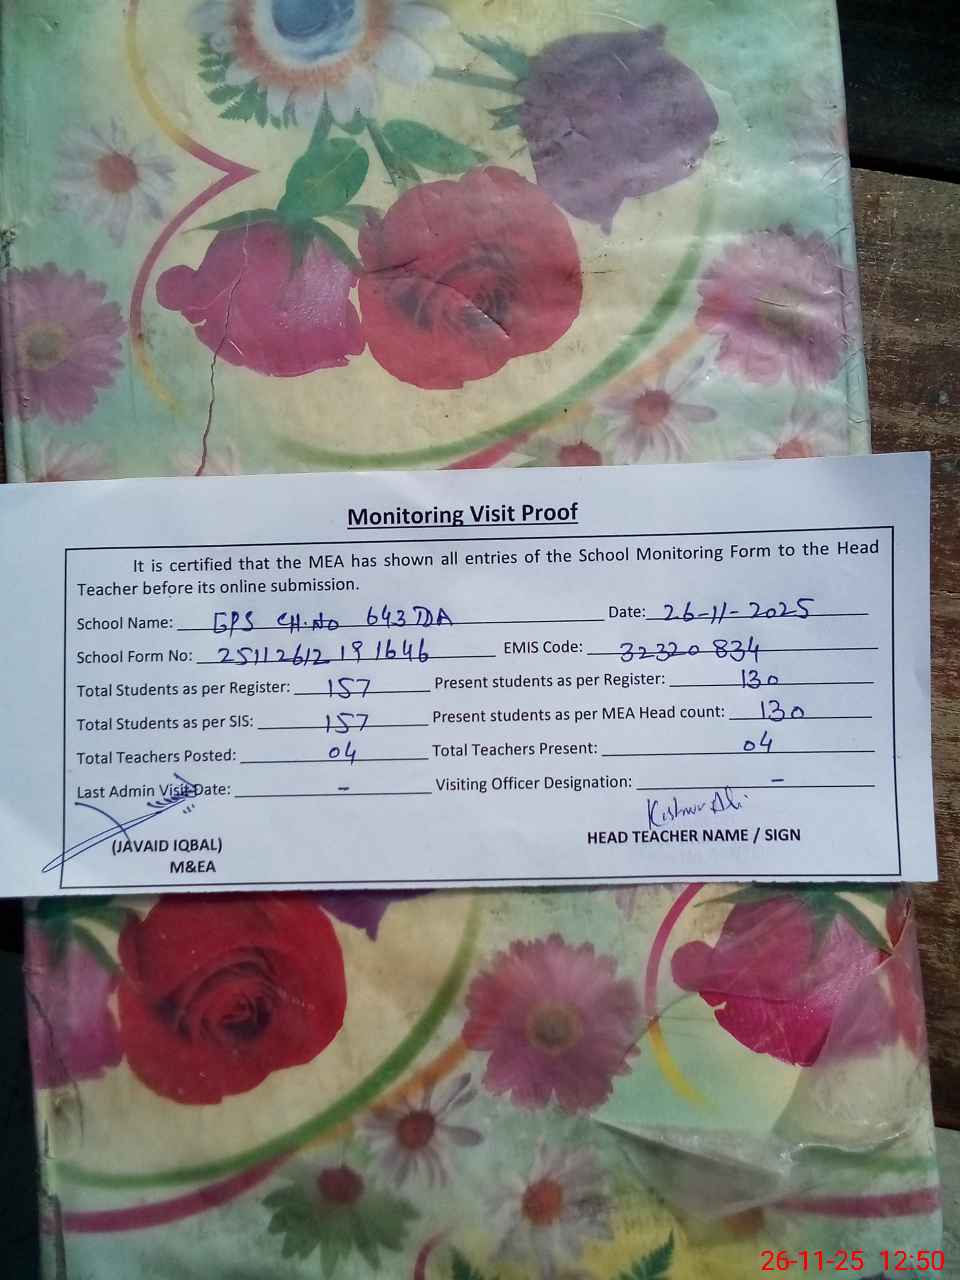 Monitoring Visit Proof
It is certified that the MEA has shown all entries of the School Monitoring Form to the Head
Teacher before its online submission.
School Name: GPS CH.No 643 TDA Date: 26-11-2025
School Form No: 25112612191646 EMIS Code: 32320834
Total Students as per Register: 157 Present students as per Register: 130
Total Students as per SIS: 157 Present students as per MEA Head count: 130
Total Teachers Posted: 04 Total Teachers Present: 04
Last Admin Visit Date: - Visiting Officer Designation: -
Kishwar Ali
(JAVAID IQBAL) HEAD TEACHER NAME / SIGN
M&EA
26-11-25 12:50